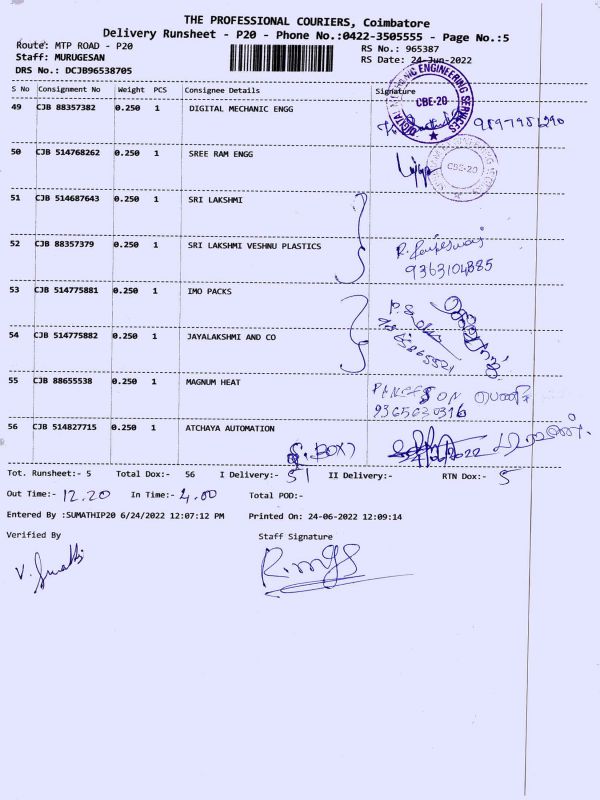 THE PROFESSIONAL COURIERS, Coimbatore
Delivery Runsheet - P20 - Phone No.:0422-3505555 - Page No.:5
Route: MTP ROAD - P20 RS No.: 965387
Staff: MURUGESAN RS Date: 24-Jun-2022
DRS No.: DCJB96538705
S No Consignment No Weight PCS Consignee Details Signature
49 CJB 88357382 0.250 1 DIGITAL MECHANIC ENGG
ENGINEERING SERVICES CBE-20
50 CJB 514768262 0.250 1 SREE RAM ENGG
CBE-20
51 CJB 514687643 0.250 1 SRI LAKSHMI
52 CJB 88357379 0.250 1 SRI LAKSHMI VESHNU PLASTICS
9363104885
53 CJB 514775881 0.250 1 IMO PACKS
54 CJB 514775882 0.250 1 JAYALAKSHMI AND CO
55 CJB 88655538 0.250 1 MAGNUM HEAT
9365630316
56 CJB 514827715 0.250 1 ATCHAYA AUTOMATION
Tot. Runsheet:- 5 Total Dox:- 56 I Delivery:- 51 II Delivery:- RTN Dox:- 5
Out Time:- 12.20 In Time:- 4.00 Total POD:-
Entered By :SUMATHIP20 6/24/2022 12:07:12 PM Printed On: 24-06-2022 12:09:14
Verified By Staff Signature